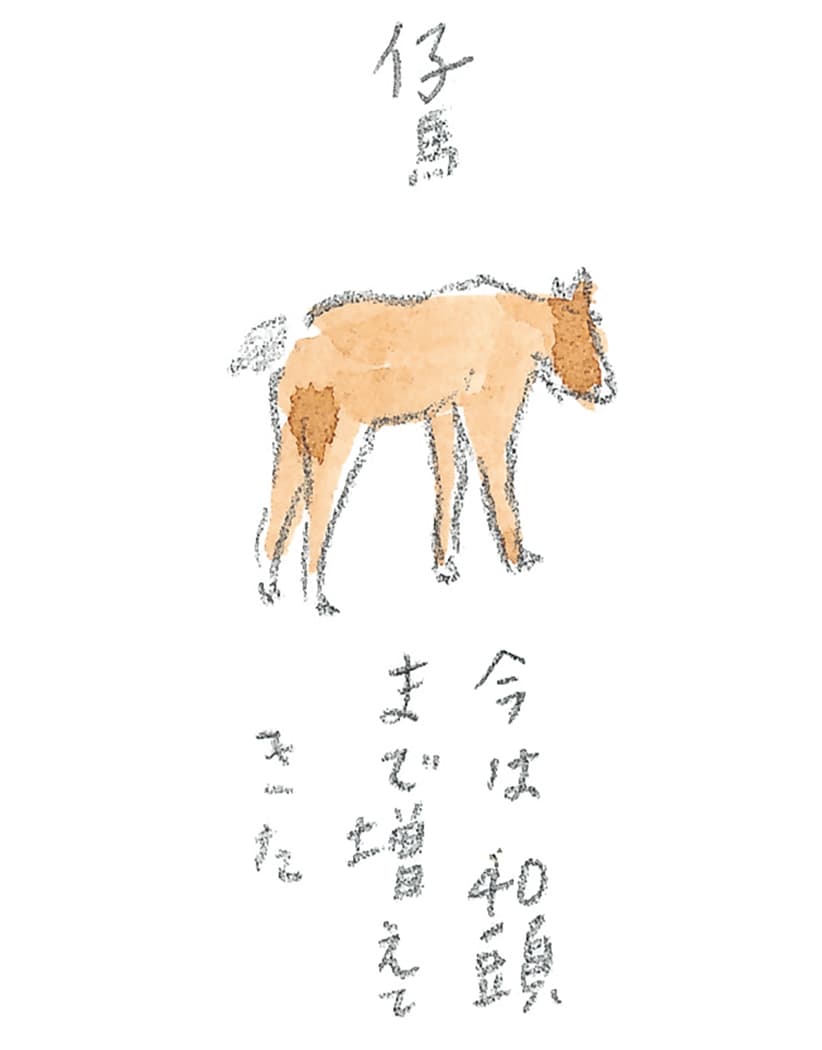 仔馬
今は40頭
まで増えて
きた